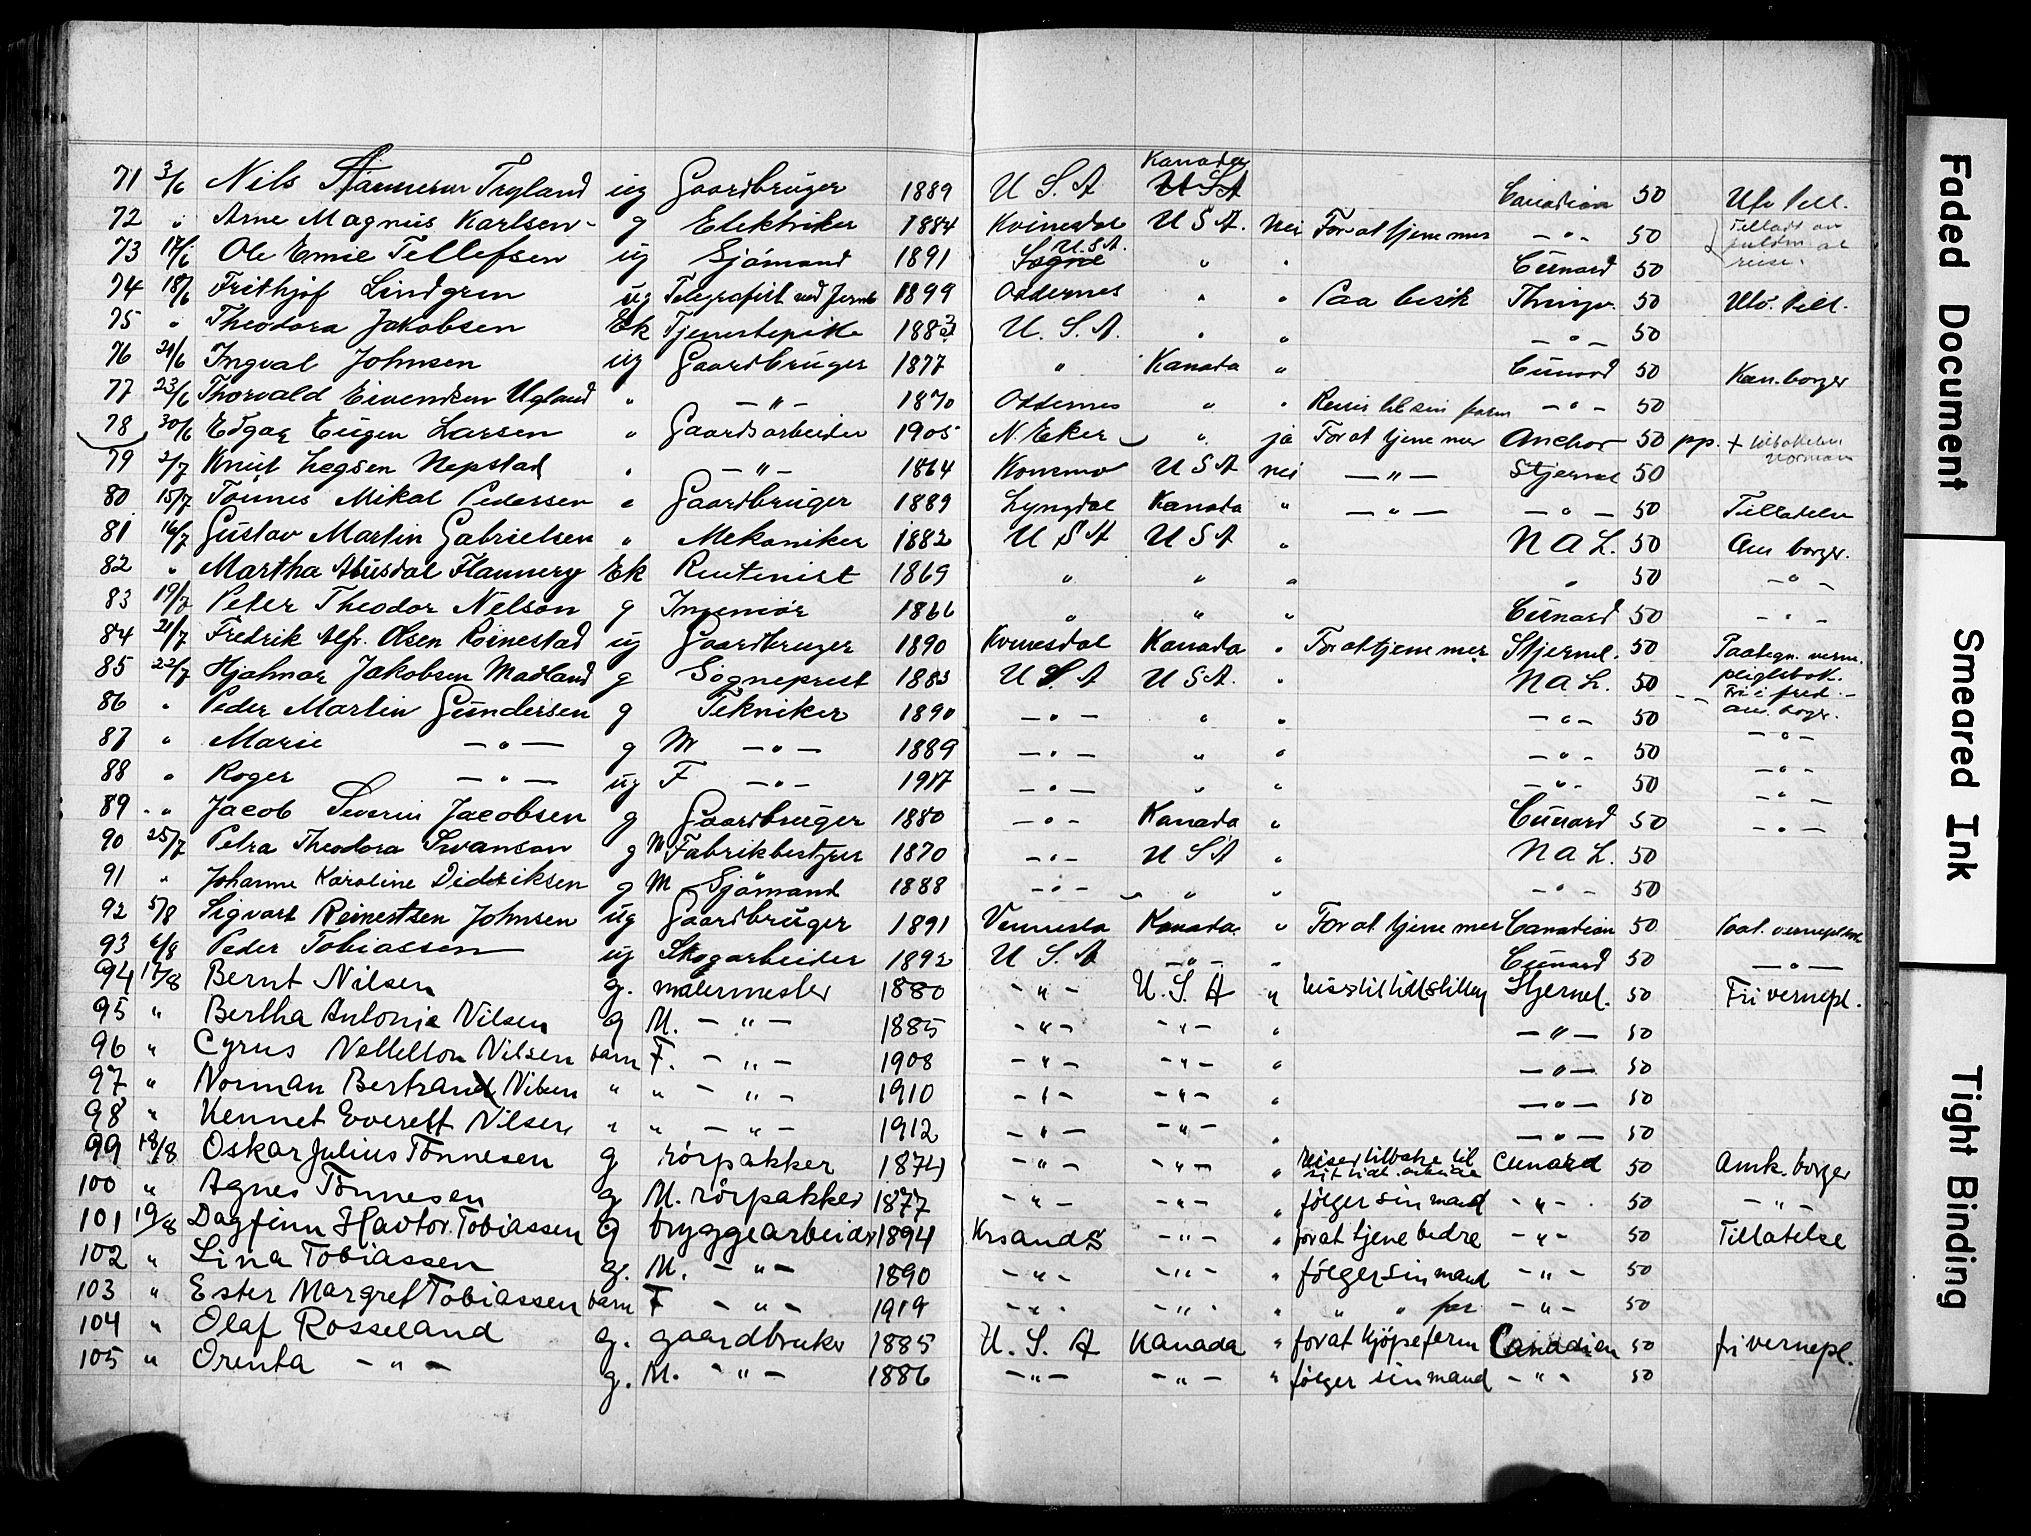 71 3/6 Nils Tryland ug Gaardbruger 1889 U S A Kanada U S A Canadian 50 Utv till.
72 " Arne Magnus Karlsen g Elektriker 1884 Kvinesdal U S A. nei For at tjene mer — " — 50
73 17/6 Ole Emil Tellefsen ug Sjömand 1891 Sogne U S A. " " Cunard 50 reise.
74 18/6 Frithjof Lindgren ug Telegrafist ved Jernb 1899 Oddernes " " Paa besök Thingv. 50 Utv. till.
75 " Theodora Jakobsen Ek Tjenestepike 1883 U. S. A. " " — " — 50
76 21/6 Ingval Johnsen ug Gaardbruger 1877 " Kanada " Cunard 50 Kan. borger
77 23/6 Thorvald Eivendsen Ugland " — " — 1870 Oddernes " " Reiser til sin farm — " — 50
78 30/6 Edgar Eugen Larsen " Gaardsarbeider 1905 N. Eker " ja For at tjene mer Anchor 50 pp. +
79 2/7 Knut Legsen Nepstad " — " — 1864 Konsmo U S A nei — " — Stjernel 50
80 15/7 Tönnes Mikal Pedersen " Gaardbruger 1889 Lyngdal Kanada " — " — — " — 50 Tillatelse
81 16/7 Gustav Martin Gabrielsen " Mekaniker 1882 U S A U S A " N A L. 50 Am borger.
82 " Martha Abusdal Flannery Ek Rentenist 1869 " " " " 50 — " —
83 19/7 Peter Theodor Nelson g Ingeniör 1866 " " " Cunard 50 — " —
84 21/7 Fredrik Alfr. Olsen Rönestad ug Gaardbruger 1890 Kvinesdal Kanada " For at tjene mer Stjernel. 50 Paategn. verne
85 22/7 Hjalmar Jakobsen Madland g Sogneprest 1883 U S A U S A. " N A L. 50 pligtsbok. Fri i fred
86 " Peder Martin Gundersen g Tekniker 1890 — " — " " — " — 50 am. borgr.
87 " Marie — " — g M — " — 1889 — " — " " — " — 50 — " —
88 " Roger — " — ug F — " — 1917 — " — " " — " — 50 — " —
89 " Jacob Severin Jacobsen g Gaardbruger 1880 — " — Kanada " Cunard 50 — " —
90 25/7 Petra Theodora Swanson g M Fabrikbestyrer 1870 — " — U S A " N A L. 50 — " —
91 " Johanne Karoline Didriksen g M Sjömand 1888 — " — " " — " — 50
92 5/8 Sigvart Reinertsen Johnsen ug Gaardbruger 1891 Vennesla Kanada " For at tjene mer Canadian 50 Paat. vernepl.bok
93 6/8 Peder Tobiassen ug Skogarbeider 1892 U S. A — " — " Cunard 50 — " —
94 17/8 Bernt Nilsen g. malermester 1880 — " — U. S. A " Stjernel. 50 Fri vernepl.
95 " Bertha Antonie Nilsen g M. — " — 1885 — " — — " — " — " — 50
96 " Cyrus Nettelton Nilsen barn F. — " — 1908 — " — — " — " — " — 50
97 " Norman Bertrand Nilsen " " — " — 1910 — " — — " — " — " — 50
98 " Kennet Everett Nilsen " " — " — 1912 — " — — " — " — " — 50
99 18/8 Oskar Julius Tönnesen g rörpakker 1874 — " — — " — " reiser tilbake til sit tidl. arbeide Cunard 50 Amk. borger
100 " Agnes Tönnesen g. M. rörpakker 1877 — " — — " — " fölger sin mand — " — 50 — " —
101 19/8 Dagfinn Havtor Tobiassen g bryggearbeider 1894 Krsands — " — " for at tjene bedre — " — 50 Tillatelse
102 " Lina Tobiassen g. M. — " — 1890 — " — — " — " fölger sin mand — " — 50
103 " Ester Margret Tobiassen barn F — " — 1919 — " — — " — " " " far — " — 50
104 " Olaf Rosseland g. gaardbruker 1885 U. S. A Kanada " for at kjöpe farm Canadien 50 fri vernepl.
105 " Orenta — " — g. M. — " — 1886 — " — — " — " fölger sin mand — " — 50
Faded Document
Smeared Ink
Tight Binding